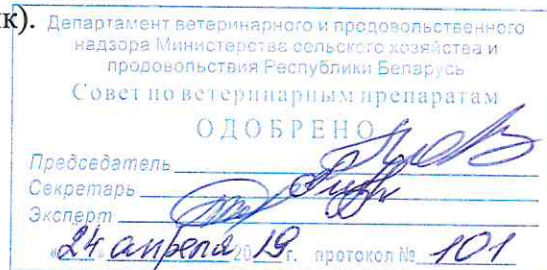 к). Департамент ветеринарного и продовольственного
надзора Министерства сельского хозяйства и
продовольствия Республики Беларусь
Совет по ветеринарным препаратам
ОДОБРЕНО
Председатель
Секретарь
Эксперт
«24» апреля 2019 г. протокол № 101